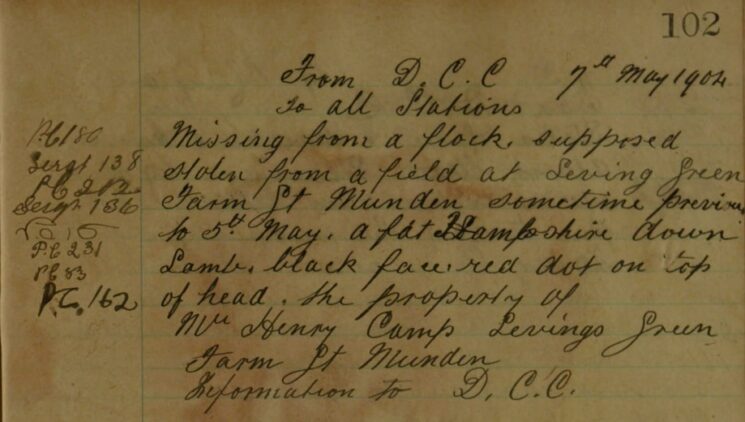 102
From D. C. C 7th May 1904
to all Stations
Missing from a flock, supposed
stolen from a field at Leving Green
Farm Gt Munden sometime previous
to 5th May. a fat Hampshire down
Lamb. black face red dot on top
of head. the property of
Mr Henry Camp Levings Green
Farm Gt Munden
Information to D. C. C.
P.C 180
Sergt 138
P.C 212
Sergt 136
P.C 231
P.C 83
P.C. 162